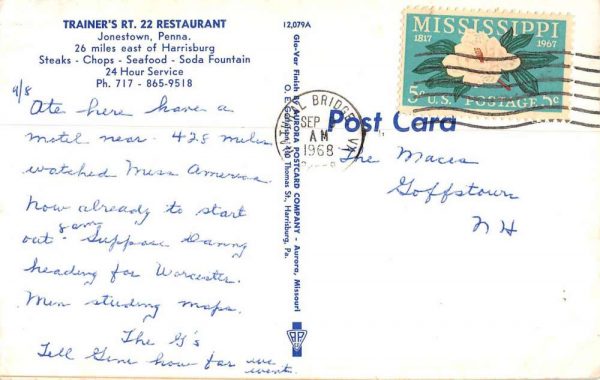 TRAINER'S RT. 22 RESTAURANT
Jonestown, Penna.
26 miles east of Harrisburg
Steaks - Chops - Seafood - Soda Fountain
24 Hour Service
Ph. 717 - 865-9518
9/8
Ate here have a
motel near. 428 miles
watched Miss America
now already to start
out 8am - Suppose Danny
heading for Worcester.
Men studing maps.
The G's
Tell Gene how far we
went.
12,079A
Glo-Var Finish By AURORA POSTCARD COMPANY - Aurora, Missouri
O. E. 400 Thomas St., Harrisburg, Pa.
MISSISSIPPI
1817 1967
5c U.S. POSTAGE 5c
BRIDGE VA
SEP
AM
1968
Post Card
The Maces
Goffstown
NH